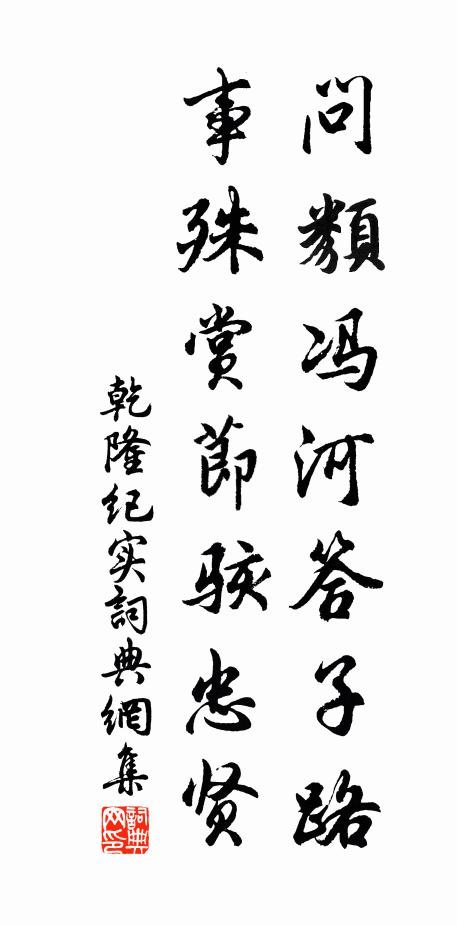 问類冯河答子路
事殊赏節骇忠贤
乾隆纪实詞典網集
詞典网印